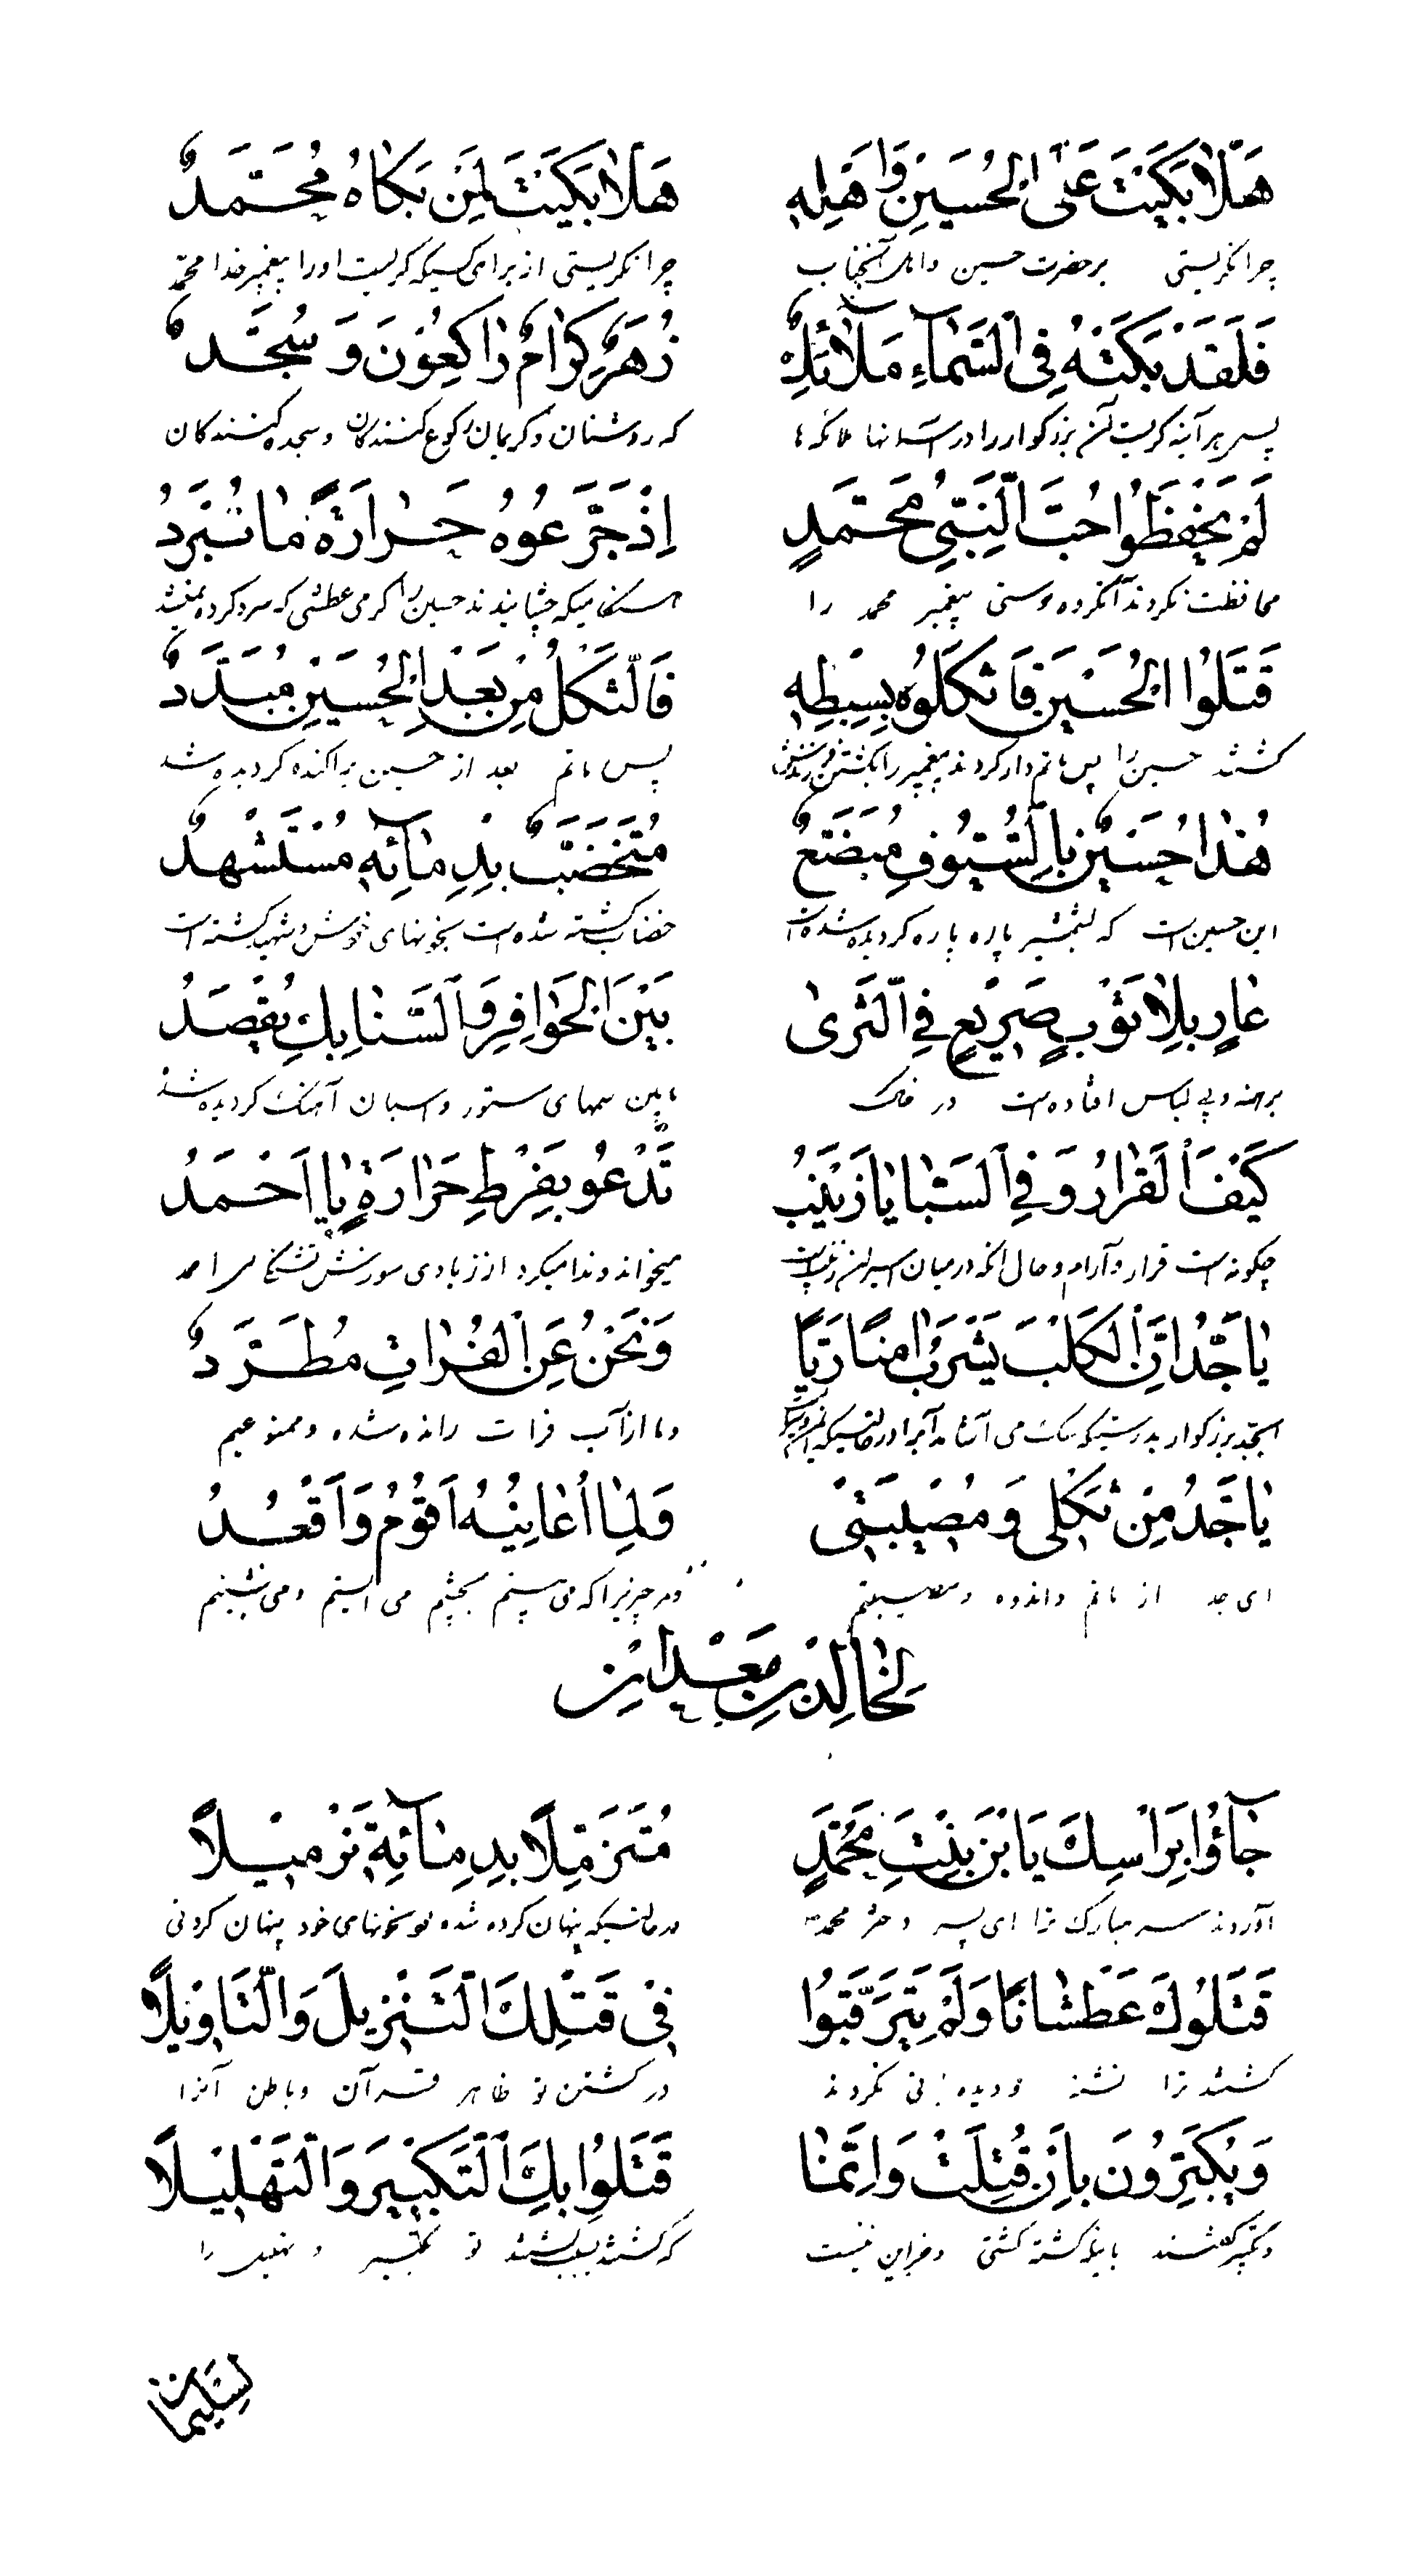 هَلَّا بَكَيْتَ عَلَى الْحُسَيْنِ وَاَهْلِهِ هَلَّا بَكَيْتَ لِمَنْ بَكَاهُ مُحَمَّدٌ
چرا نگریستی بر حضرت حسین و اهل آنجناب چرا نگریستی از برای کسیکه گریست او را پیغمبر خدا محمد
فَلَقَدْ بَكَتْهُ فِي السَّمَاءِ مَلَائِكٌ زُهَرٌ كِرَامٌ رَاكِعُونَ وَسُجَّدٌ
پس هر آینه گریست آن بزرگوار را در آسمانها ملائکه ها که روشنان و کریمان رکوع کنندگان و سجده کنندگان
لَمْ يَحْفَظُوا حُبَّ النَّبِيِّ مُحَمَّدٍ اِذْ جَرَّعُوهُ حَرَارَةً مَا تُبَرَدُ
محافظت نکردند آنگروه دوستی پیغمبر محمد را هنگامیکه چشانیدند حسین را گرمی عطشی که سرد کرده نمیشد
قَتَلُوا الْحُسَيْنَ فَاثْكَلُوهُ بِسِبْطِهِ فَالثُّكْلُ مِنْ بَعْدِ الْحُسَيْنِ مُبَدَّدٌ
کشتند حسین را پس ماتم دار کردند پیغمبر را بکشتن فرزندش پس ماتم بعد از حسین پراکنده گردیده شد
هٰذَا حُسَيْنٌ بِالسُّيُوفِ مُبَضَّعٌ مُتَخَضِّبٌ بِدِمَائِهِ مُسْتَشْهَدٌ
این حسین است که بشمشیر پاره پاره گردیده شده است خضاب گشته شده است بخونهای خویش و شهید گشته است
عَارٍ بِلَا ثَوْبٍ صَرِيعٍ فِي الثَّرَىٰ بَيْنَ الْحَوَافِرِ وَالسَّنَابِكِ يُقْصَدُ
برهنه و بی لباس افتاده است در خاک مابین سمهای ستور و اسبان آهنگ گردیده شد
كَيْفَ الْقَرَارُ وَفِي السَّبَايَا زَيْنَبُ تَدْعُو بِفَرْطِ حَرَارَةٍ يَا اَحْمَدُ
چگونه است قرار و آرام و حال آنکه در میان اسیران زینب است میخواند و ندا میکرد از زیادی سوزش تشنگی احمد
يَا جَدُّ اِنَّ الْكَلْبَ يَشْرَبُ اٰمِنًا رَيًّا وَنَحْنُ عَنِ الْفُرَاتِ مُطَرَّدٌ
ایجد بزرگوار بدرستیکه سگ می آشامد آب را در حالتیکه و ما از آب فرات رانده شده و ممنوعیم
يَا جَدُّ مِنْ ثُكْلِي وَمُصِيبَتِي وَلِمَا اُعَايِنُهُ اَقُومُ وَاَقْعُدُ
ای جد از ماتم و اندوه و مصیبتم و هر چیزیرا که می بینم بچشم می ایستم و می نشینم
لِخَالِدِ بْنِ مَعْدَانَ
جَاؤُا بِرَاْسِكَ يَا بْنَ بِنْتِ مُحَمَّدٍ مُتَزَمِّلًا بِدِمَائِهِ تَزْمِيلًا
آوردند سر مبارک ترا ای پسر دختر محمد در حالتیکه پنهان کرده شده بود بخونهای خود پنهان کردنی
قَتَلُوكَ عَطْشَانًا وَلَمْ يَتَرَقَّبُوا فِي قَتْلِكَ التَّنْزِيلَ وَالتَّاْوِيلَا
کشتند ترا تشنه و دیده بانی نکردند در کشتن تو ظاهر قرآن و باطن آنرا
وَيُكَبِّرُونَ بِاَنْ قُتِلْتَ وَاِنَّمَا قَتَلُوا بِكَ التَّكْبِيرَ وَالتَّهْلِيلَا
و تکبیر گفتند باینکه کشته گشتی و جز این نیست که کشتند بسبب کشتن تو تکبیر و تهلیل را
لِسُلَيْمَان